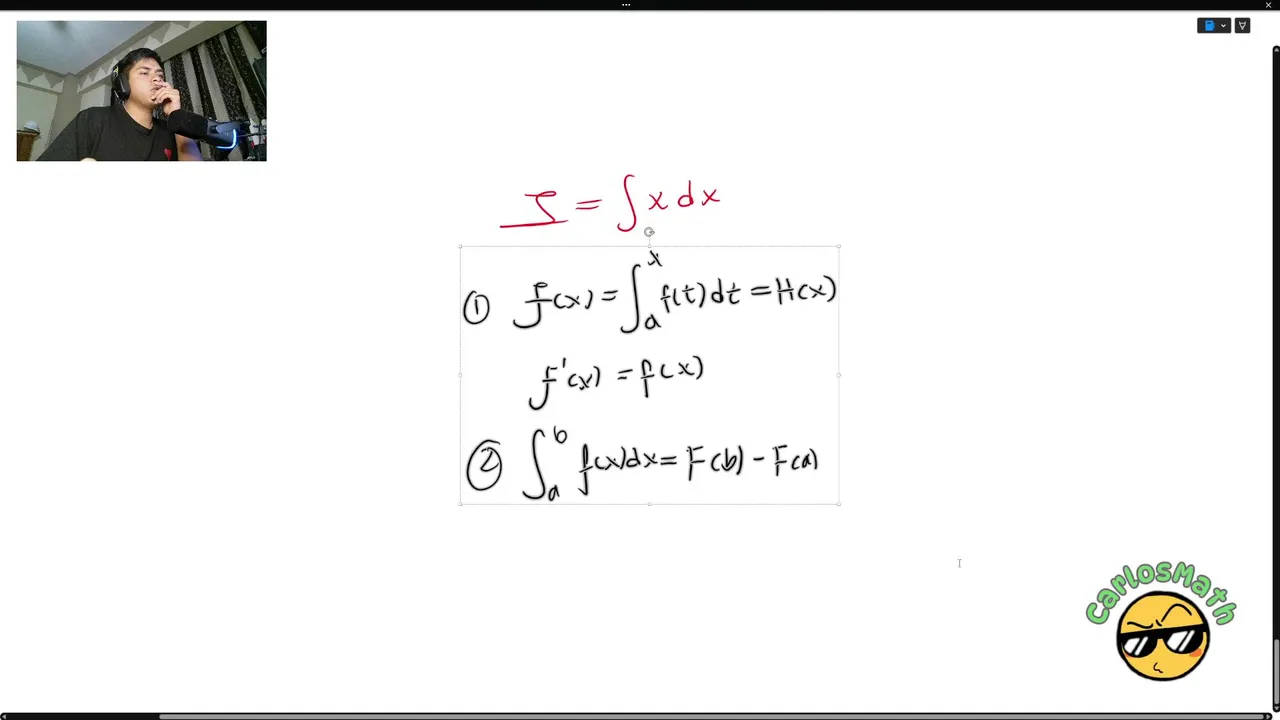 I = ∫ x dx
① F(x) = ∫ₐˣ f(t) dt = H(x)
F'(x) = f(x)
② ∫ₐᵇ f(x) dx = F(b) - F(a)
CarlosMath